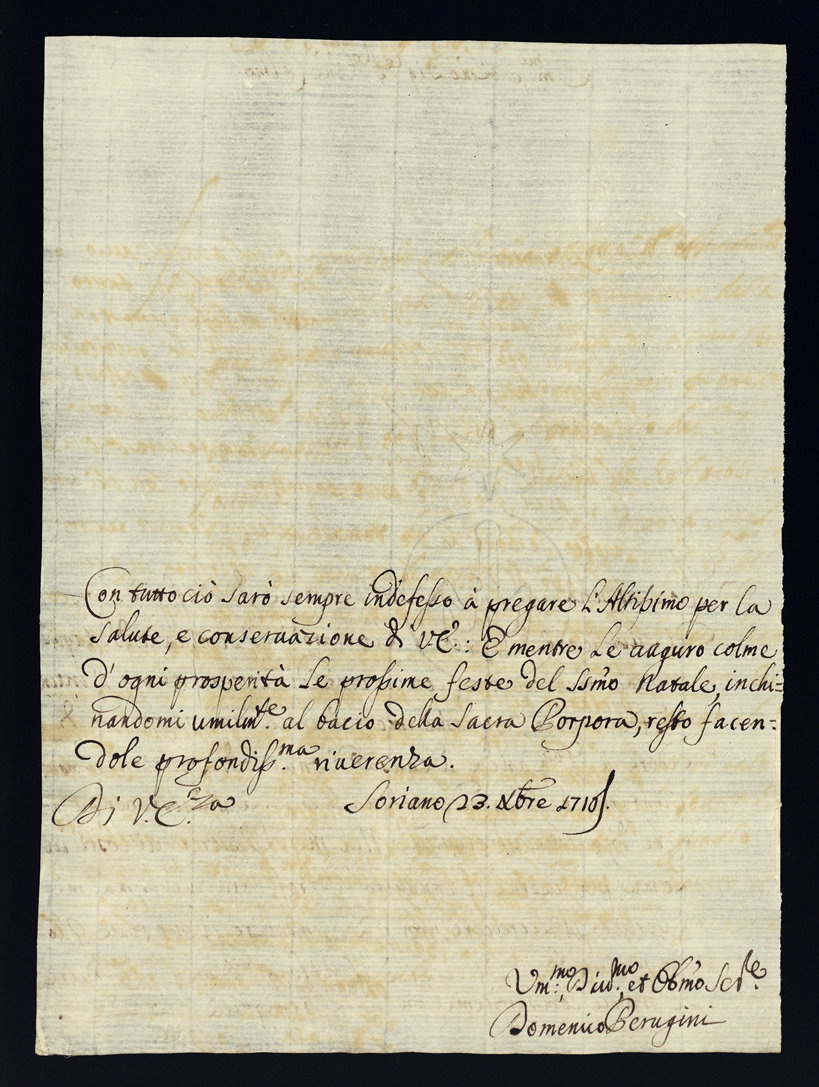 Con tutto ciò sarò sempre indefesso à pregare L'Altissimo per la
salute, e conservazione di V.E.: E mentre Le auguro colme
d'ogni prosperità le prossime feste del SSmo Natale, inchi=
nandomi umilmte. al bacio della Sacra Porpora, resto facen=
dole profondiss.ma riverenza.
Di V.E.za Soriano 23. Xbre 1710.
Um:mo Div:mo et Obbmo Ser.re
Domenico Perugini